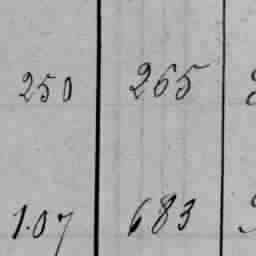 250 265
1.07 683